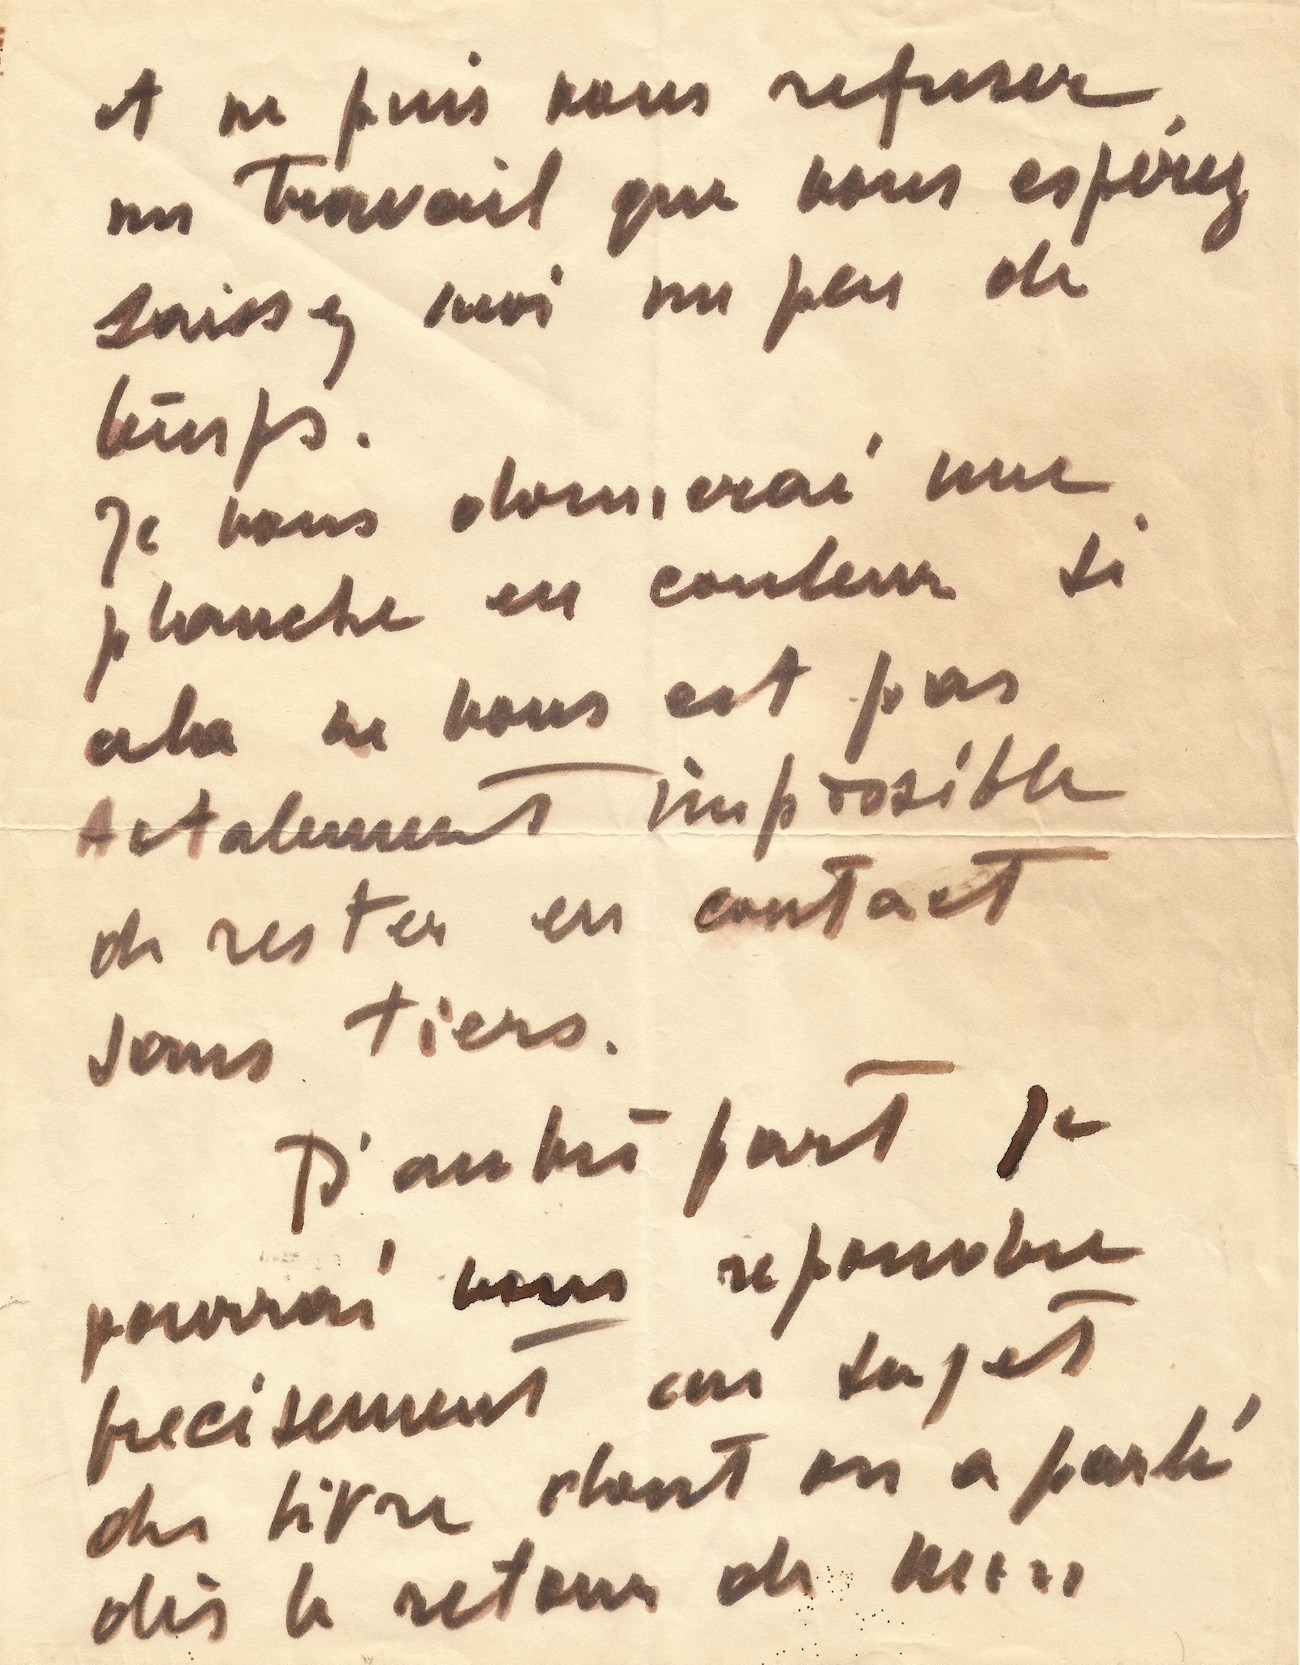 et ne puis vous refuser
un travail que vous espérez
laissez moi un peu de
temps.
Je vous donnerai une
planche en couleur si
cela ne vous est pas
totalement impossible
de rester en contact
sans tiers.
D'autre part je
pourrai vous repondre
precisement au sujet
du livre dont on a parlé
dès le retour de